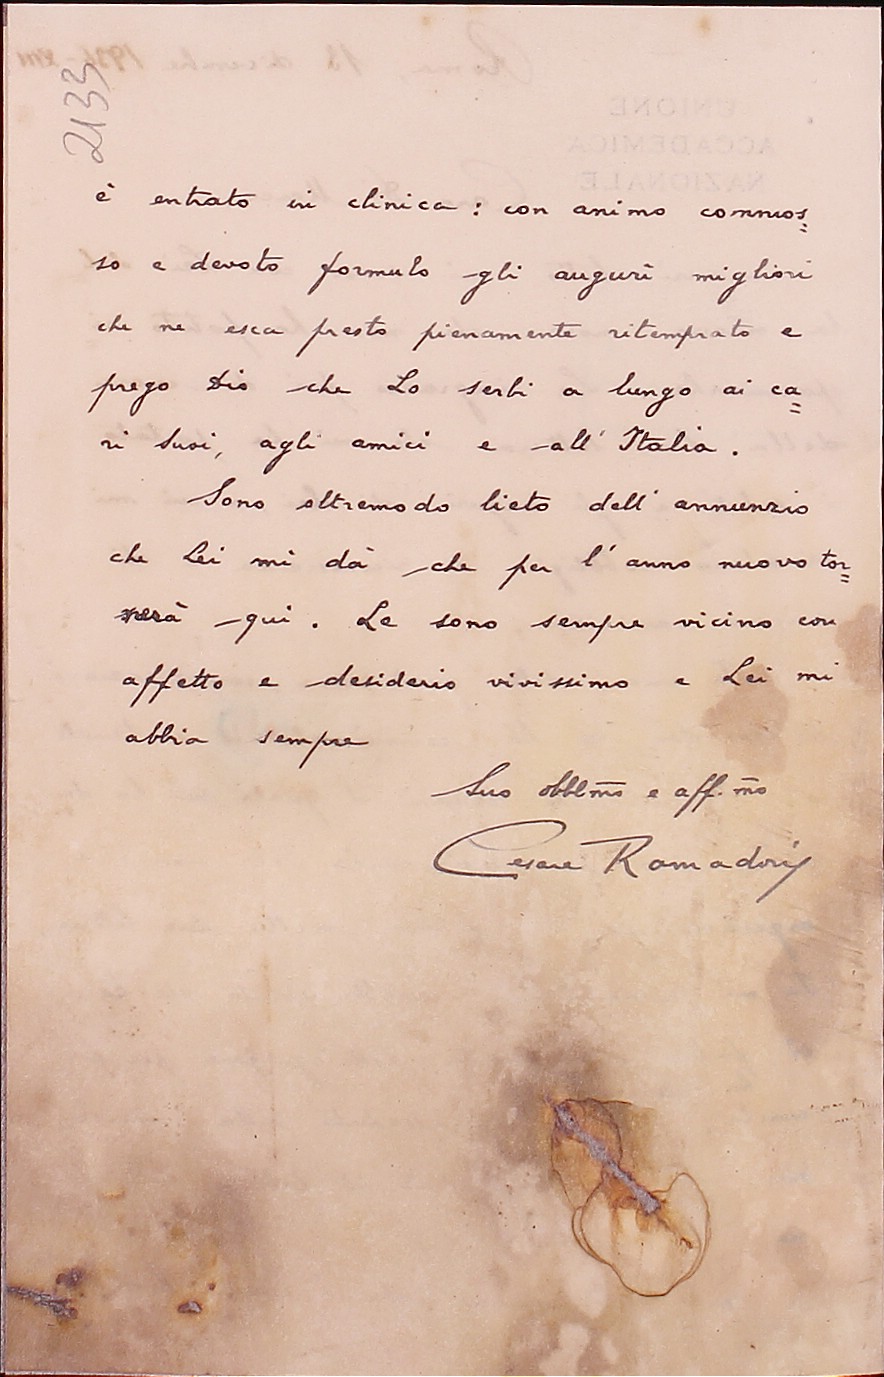 2133
è entrato in clinica: con animo commos=
so e devoto formulo gli augurî migliori
che ne esca presto pienamente ritemprato e
prego Dio che Lo serbi a lungo ai ca=
ri Suoi, agli amici e all'Italia.
Sono oltremodo lieto dell'annunzio
che Lei mi dà che per l'anno nuovo tor=
nerà qui. Le sono sempre vicino con
affetto e desiderio vivissimo e Lei mi
abbia sempre
Suo obbl̅m̅o e aff.m̅o
Cesare Ramadori